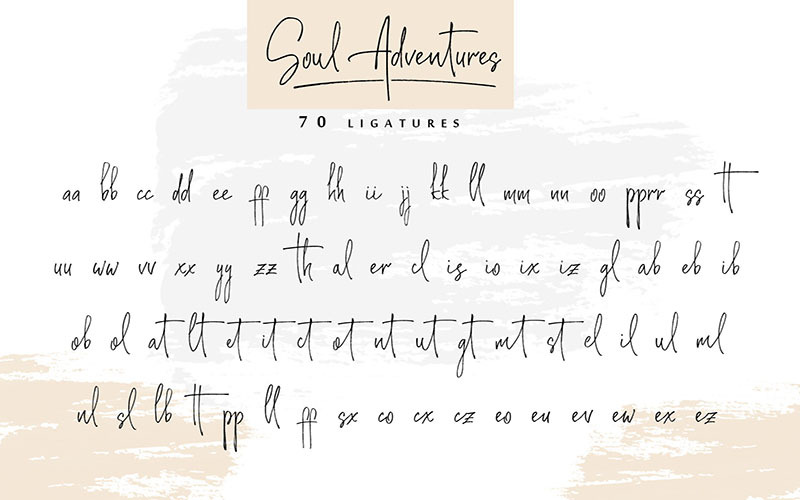 Soul Adventures
70 LIGATURES
aa bb cc dd ee ff gg hh ii jj kk ll mm nn oo pprr ss tt
uu ww vv xx yy zz th al er cl is io ix iz gl ab eb ib
ob ol at lt et it ct ot nt ut gt mt st el il ul ml
nl sl lb tt pp ll ff sx co cx cz eo eu ev ew ex ez